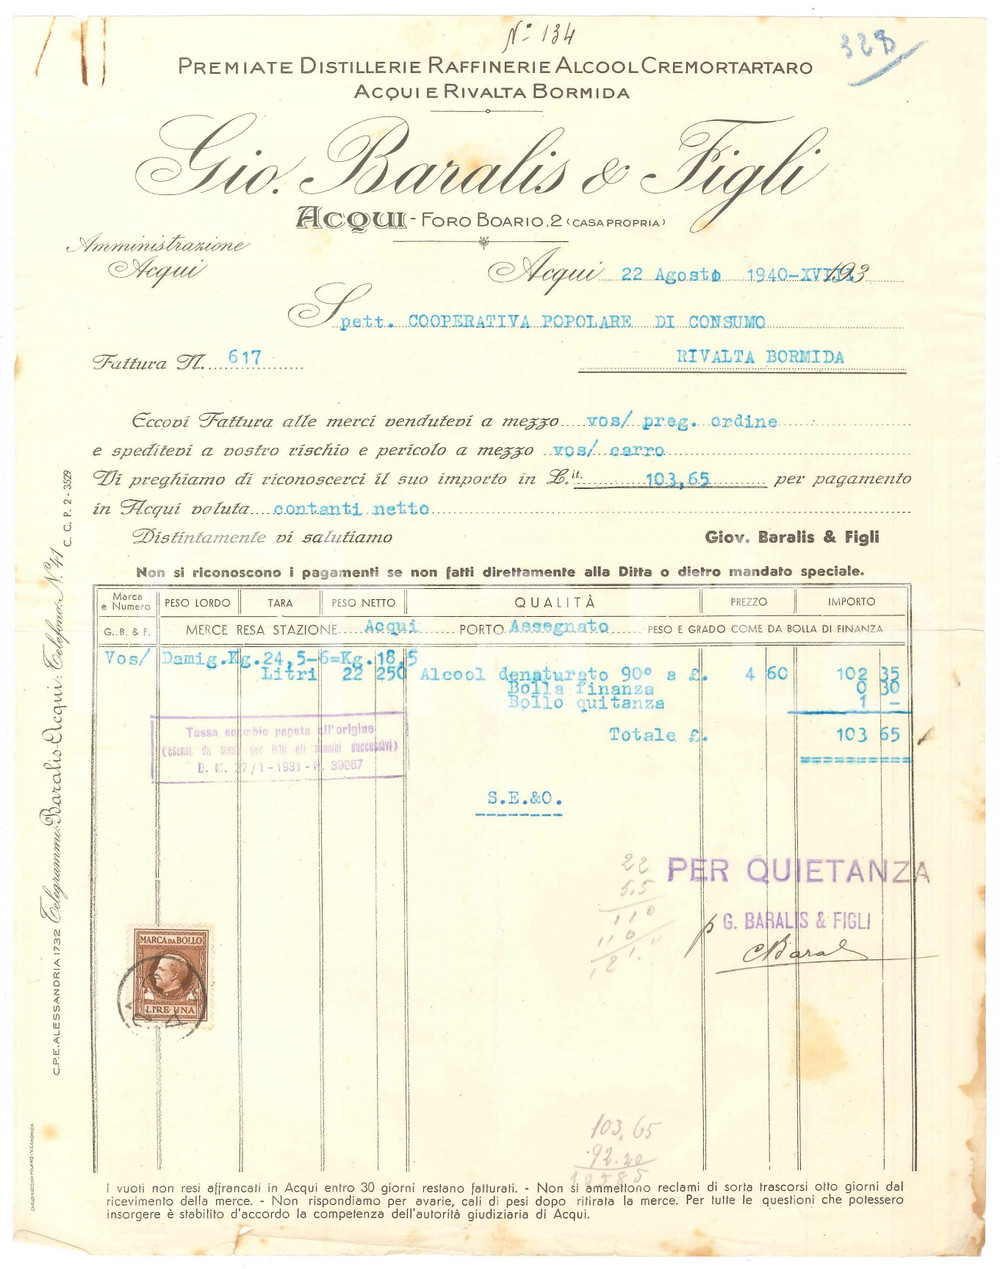 N° 134
328
PREMIATE DISTILLERIE RAFFINERIE ALCOOL CREMORTARTARO
ACQUI E RIVALTA BORMIDA
Gio. Baralis & Figli
ACQUI - FORO BOARIO, 2 (CASA PROPRIA)
Amministrazione
Acqui
Acqui 22 Agosto 1940-XVIII 193
Spett. COOPERATIVA POPOLARE DI CONSUMO
Fattura N. 617 RIVALTA BORMIDA
Eccovi Fattura alle merci vendutevi a mezzo vos/ preg. ordine
e speditevi a vostro rischio e pericolo a mezzo vos/ carro
Vi preghiamo di riconoscerci il suo importo in L.it. 103,65 per pagamento
in Acqui valuta contanti netto
Distintamente vi salutiamo Giov. Baralis & Figli
Non si riconoscono i pagamenti se non fatti direttamente alla Ditta o dietro mandato speciale.
Marca e Numero PESO LORDO TARA PESO NETTO QUALITÀ PREZZO IMPORTO
G. B. & F. MERCE RESA STAZIONE Acqui PORTO Assegnato PESO E GRADO COME DA BOLLA DI FINANZA
Vos/ Damig.Kg.24,5-6=Kg.18,5
Litri 22 250 Alcool denaturato 90° a £. 4 60 102 35
Bolla finanza 0 30
Bollo quitanza 1 -
Totale £. 103 65
Tassa scambio pagata all'origine
(esente da tassa per tutti gli scambi successivi)
D. M. 27/1-1931-N. 33067
S.E.&O.
22
5,5
110
110
PER QUIETANZA
p G. BARALIS & FIGLI
MARCA DA BOLLO
LIRE UNA
103,65
92.20
C.P.E. ALESSANDRIA 1732 Telegrammi: Baralis-Acqui: Telefono: N° 41 C. C. P. 2 - 3529
I vuoti non resi affrancati in Acqui entro 30 giorni restano fatturati. - Non si ammettono reclami di sorta trascorsi otto giorni dal
ricevimento della merce. - Non rispondiamo per avarie, cali di pesi dopo ritirata la merce. Per tutte le questioni che potessero
insorgere è stabilito d'accordo la competenza dell'autorità giudiziaria di Acqui.